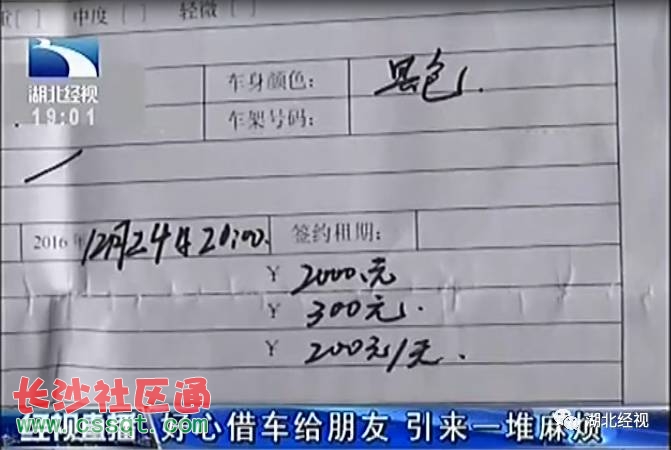 重[ ] 中度[ ] 轻微[
湖北经视
19:01
车身颜色： 黑色.
车架号码：
2016年12月24日20:00. 签约租期：
¥ 2000.元
¥ 300元.
¥ 200元/天.
长沙社区通
www.cssqt.com
经视直播 好心借车给朋友 引来一堆麻烦
湖北经视